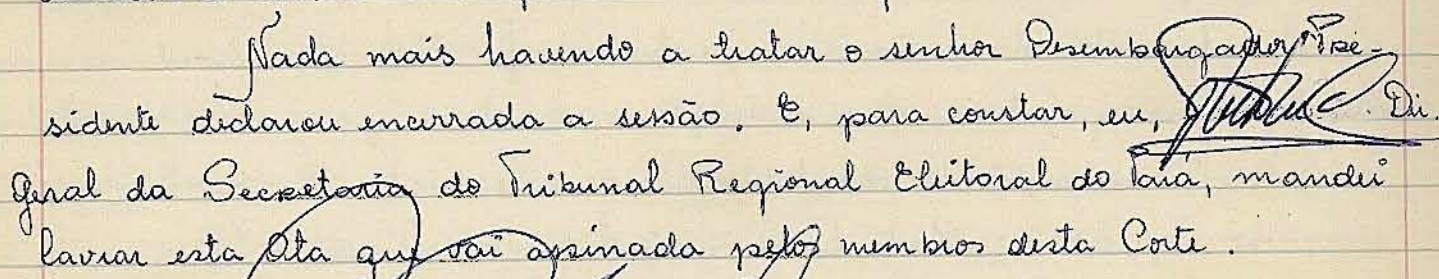 Nada mais havendo a tratar o senhor Desembargador Pre-
sidente declarou encerrada a sessão. E, para constar, eu, Di.
Geral da Secretaria do Tribunal Regional Eleitoral do Pará, mandei
lavrar esta Ata que vai assinada pelos membros desta Corte.